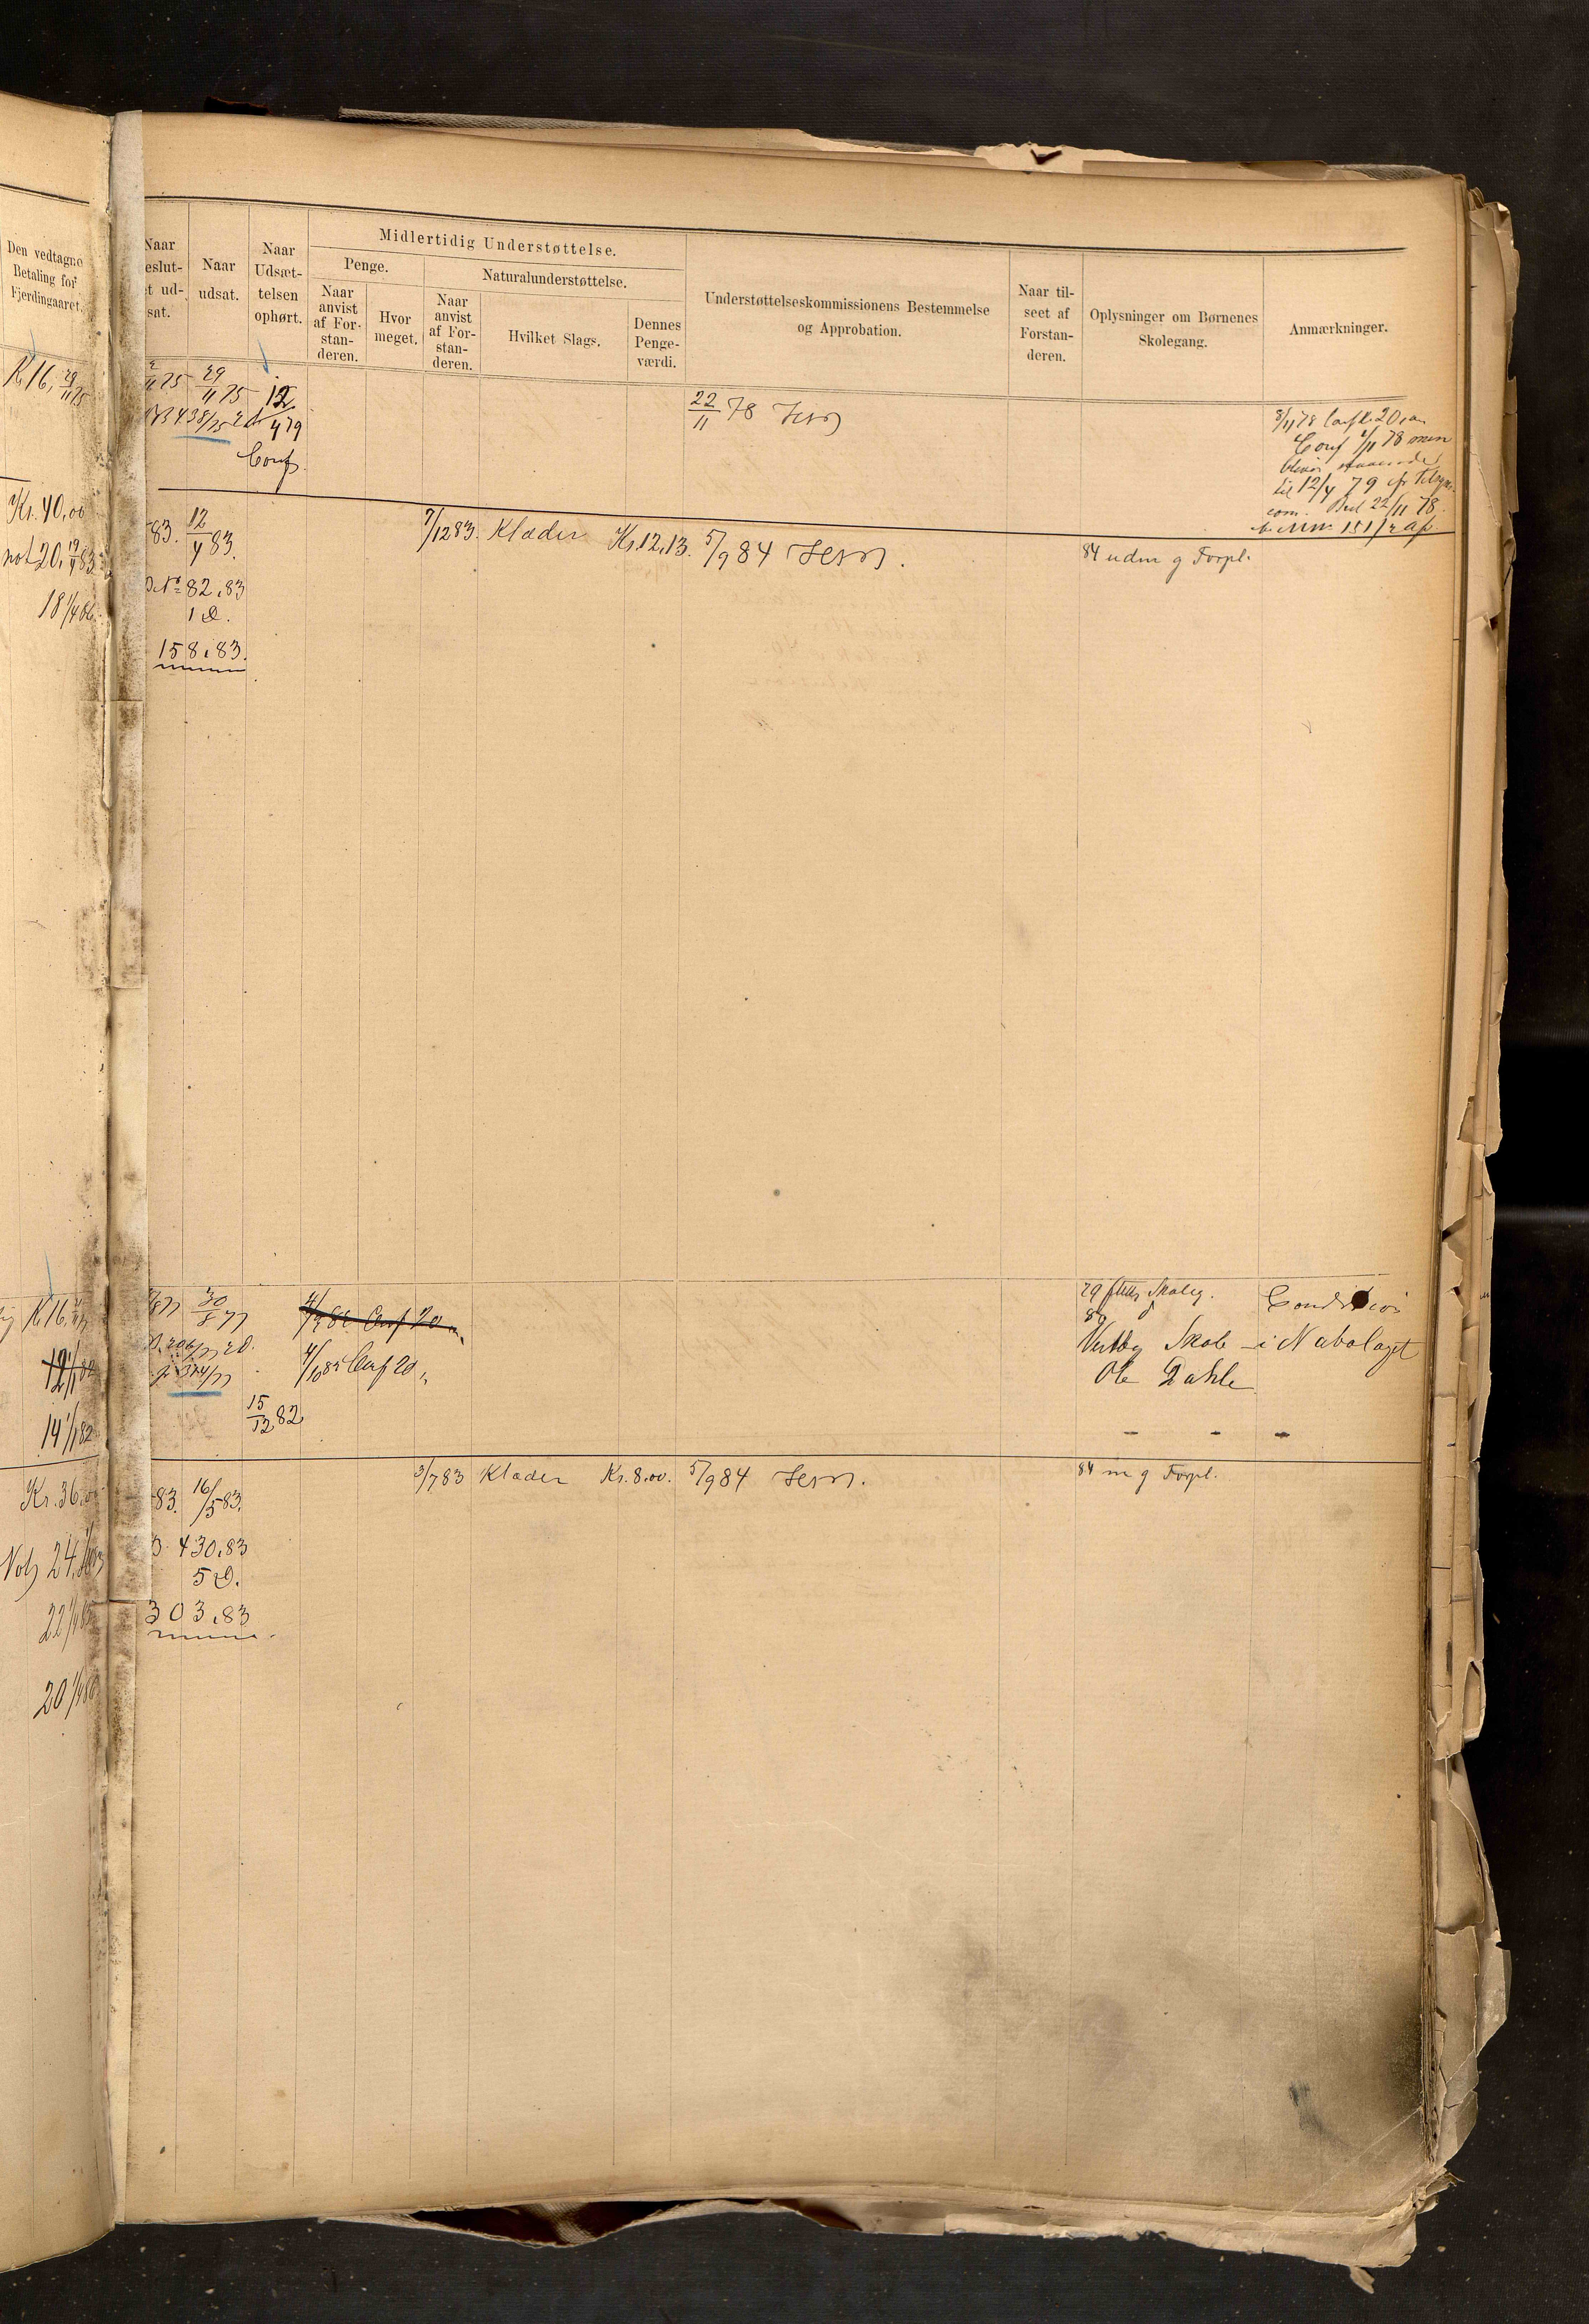 Den vedtagne
Betaling for
Fjerdingaaret.
Naar
beslut-
et ud-
sat.
Naar
udsat.
Naar
Udsæt-
telsen
ophørt.
Midlertidig Understøttelse.
Penge.
Naar
anvist
af For-
stan-
deren.
Hvor
meget.
Naturalunderstøttelse.
Naar
anvist
af For-
stan-
deren.
Hvilket Slags.
Dennes
Penge-
værdi.
Understøttelseskommissionens Bestemmelse
og Approbation.
Naar til-
seet af
Forstan-
deren.
Oplysninger om Børnenes
Skolegang.
Anmærkninger.
K 16, 29/11 75
29/11 75
438/75
12/4 79
Conf.
22/11 78
8/11 78 20
Conf 78 men
til 12/4 79
com. 22/11 78.
Kr. 40,00
20, 83
18 1/4 86
83. 12/4 83.
No 82.83
1 D.
158.83.
7/12 83. Klæder Kr. 12,13. 5/9 84
84 udm g Forpl.
K 16.
12
14 1/1 82
77 30/8 77
324/77
15/12 82
4/10 82 Conf 20
79 Skoleg.
Skole i Nabolaget
Ole Dahle
- - -
Kr. 36
24
22
20
83. 16/5 83.
430.83
5 D.
303.83
3/7 83 Klæder Kr. 8.00. 5/9 84
84 m g Forpl.